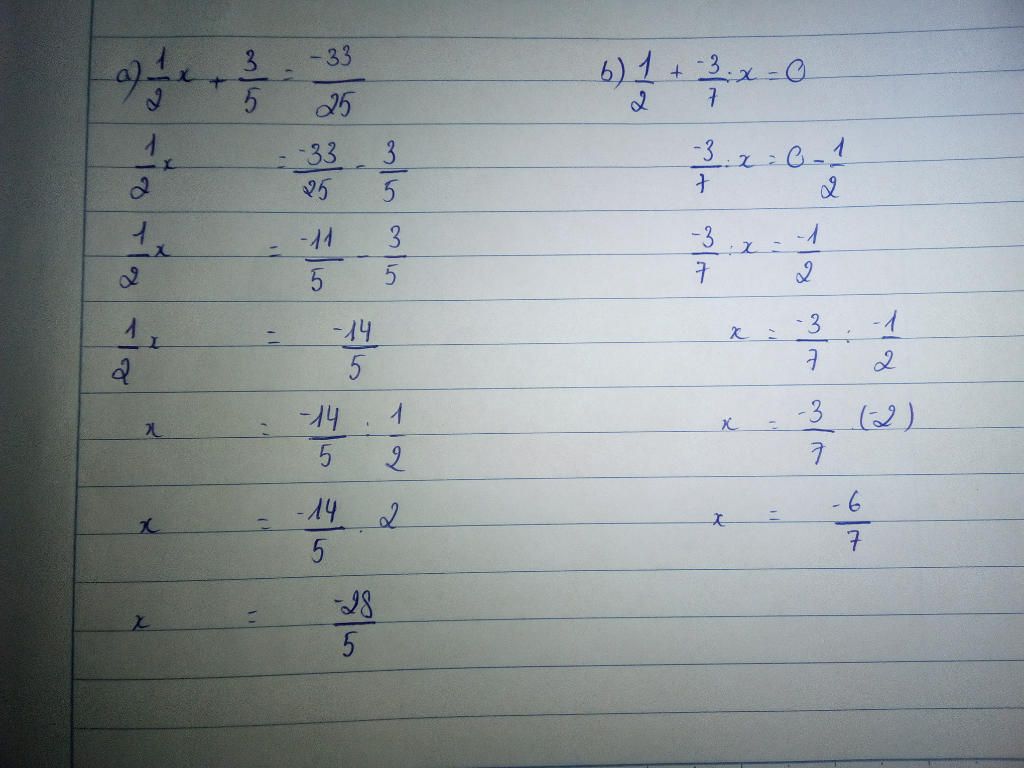 a) 1/2 x + 3/5 = -33/25
1/2 x = -33/25 - 3/5
1/2 x = -11/5 - 3/5
1/2 x = -14/5
x = -14/5 : 1/2
x = -14/5 . 2
x = -28/5
b) 1/2 + -3/7 : x = 0
-3/7 : x = 0 - 1/2
-3/7 : x = -1/2
x = -3/7 : -1/2
x = -3/7 . (-2)
x = -6/7